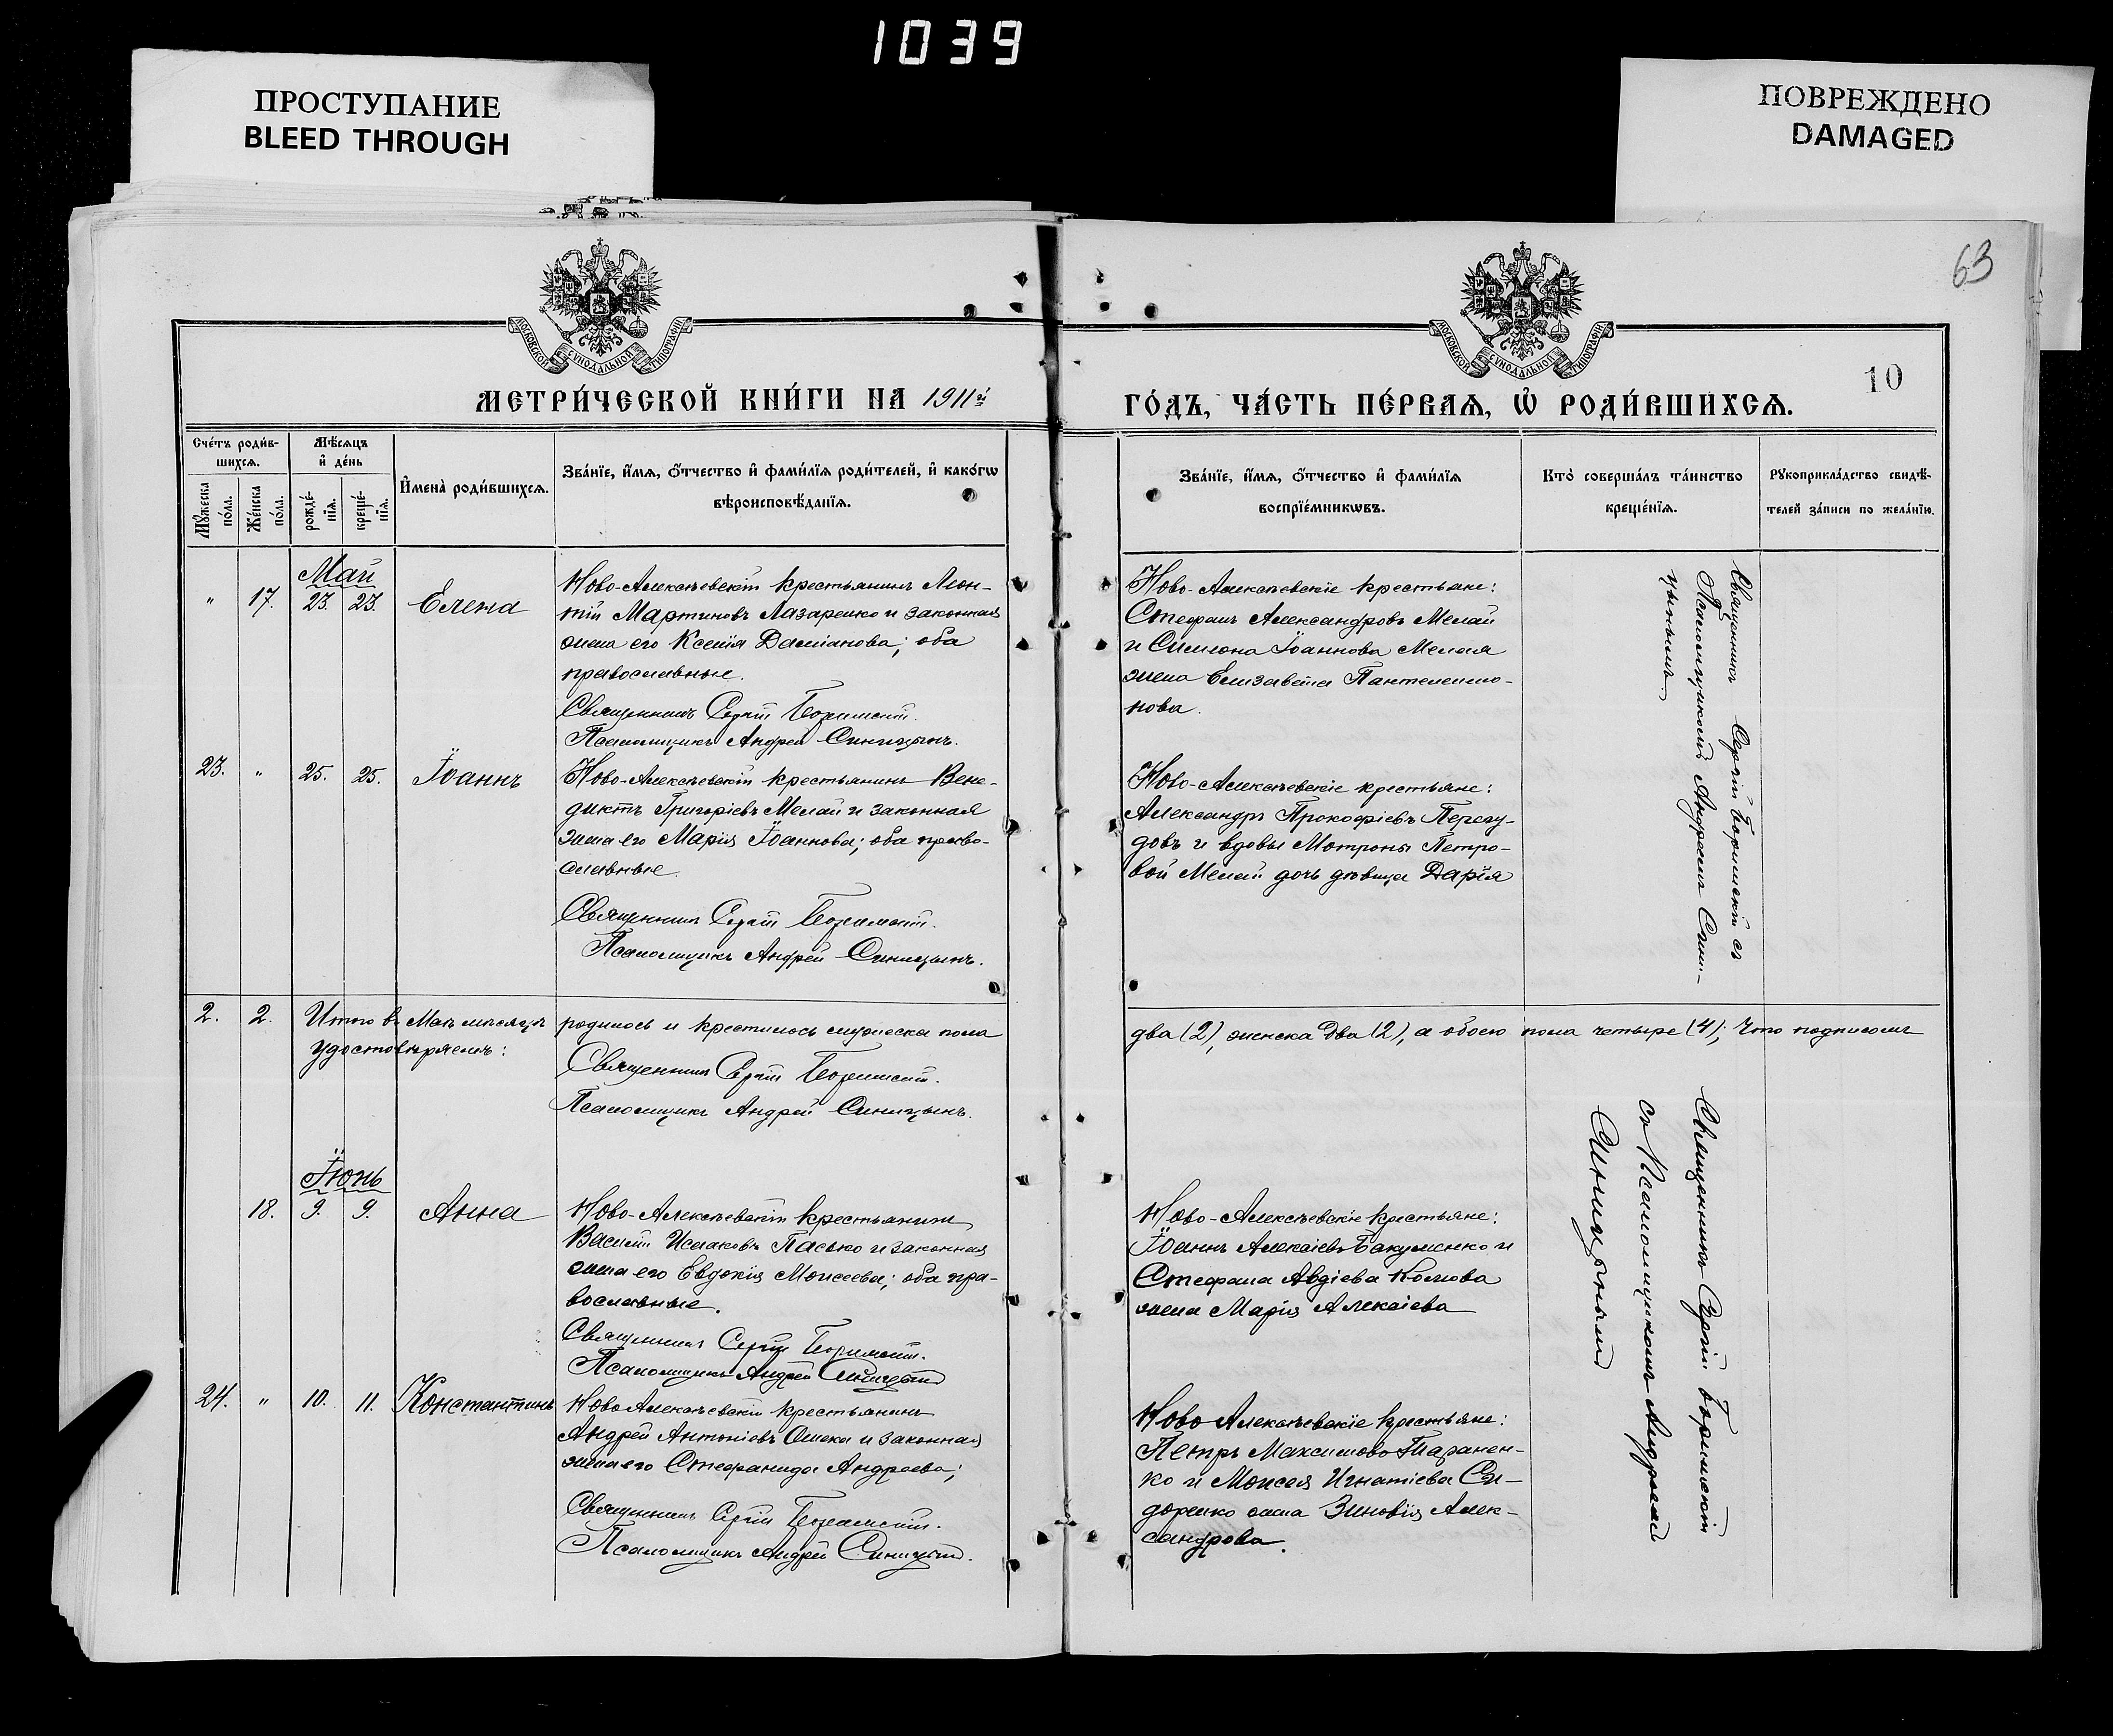 1039
ПРОСТУПАНИЕ
BLEED THROUGH
ПОВРЕЖДЕНО
DAMAGED
63
МОСКОВСКОЙ СѴНОДАЛЬНОЙ ТИПОГРАФІИ
МОСКОВСКОЙ СѴНОДАЛЬНОЙ ТИПОГРАФІИ
10
МЕТРИ́ЧЕСКОЙ КНИ́ГИ НА 1911й
ГО́ДЪ, ЧА́СТЬ ПЕ́РВАѦ, Ѡ҆ РОДИ́ВШИХСѦ.
Сче́тъ роди́в-
шихсѧ.
Мѣ́сѧцъ
и҆ де́нь
Мꙋ́жеска
по́ла.
Же́нска
по́ла.
рожде́-
нїѧ.
креще́-
нїѧ.
И҆мена̀ роди́вшихсѧ.
Зва́нїе, и҆́мѧ, ѻ҆́тчество и҆ фами́лїѧ роди́телей, и҆ како́гѡ
вѣроисповѣ́данїѧ.
Зва́нїе, и҆́мѧ, ѻ҆́тчество и҆ фами́лїѧ
воспрїе́мникѡвъ.
Кто̀ соверша́лъ та́инство
креще́нїѧ.
Рꙋкоприкла́дство свидѣ́-
телей за́писи по жела́нїю.
Май
" 17. 23. 23. Елена
Ново-Алексѣевскій крестьянинъ Леон-
тій Мартиновъ Лазаренко и законная
жена его Ксенія Даміанова; оба
православные.
Священникъ Сергій
Псаломщикъ Андрей Синицынъ.
Ново-Алексѣевскіе крестьяне:
Стефанъ Александровъ Мелай
и Симеона Іоаннова Мелая
жена Елизавета Пантелеимо-
нова.
Священникъ Сергій съ
Псаломщикомъ Андреемъ Сини-
цынымъ
23. " 25. 25. Іоаннъ
Ново-Алексѣевскій крестьянинъ Вене-
диктъ Григоріевъ Мелай и законная
жена его Марія Іоаннова; оба право-
славные.
Священникъ Сергій
Псаломщикъ Андрей Синицынъ.
Ново-Алексѣевскіе крестьяне:
Александръ Прокофіевъ Перегу-
довъ и вдовы Мотроны Петро-
вой Мелай дочь дѣвица Дарія
2. 2. Итого въ Маѣ мѣсяцѣ родилось и крестилось мужеска пола
два (2), женска два (2), а обоего пола четыре (4); Что подписомъ
удостовѣряемъ:
Священникъ Сергій
Псаломщикъ Андрей Синицынъ.
Іюнь
18. 9. 9. Анна
Ново-Алексѣевскій крестьянинъ
Василій Исааковъ Пасько и законная
жена его Евдокія Моисеева; оба пра-
вославные.
Священникъ Сергій
Псаломщикъ Андрей Синицынъ
Ново-Алексѣевскіе крестьяне:
Іоаннъ Алексіевъ Бакуменко и
Стефана Авдіева
жена Марія Алексіева
Священникъ Сергій
съ Псаломщикомъ Андреемъ
Синицынымъ
24. " 10. 11. Константинъ
Ново Алексѣевскій крестьянинъ
Андрей Антоніевъ и законная
жена его Стефанида Андреева;
Священникъ Сергій
Псаломщикъ Андрей Синицынъ.
Ново Алексѣевскіе крестьяне:
Петръ Максимовъ
ко и Моисея Игнатіева Си-
доренко жена Зиновія Алек-
сандрова.